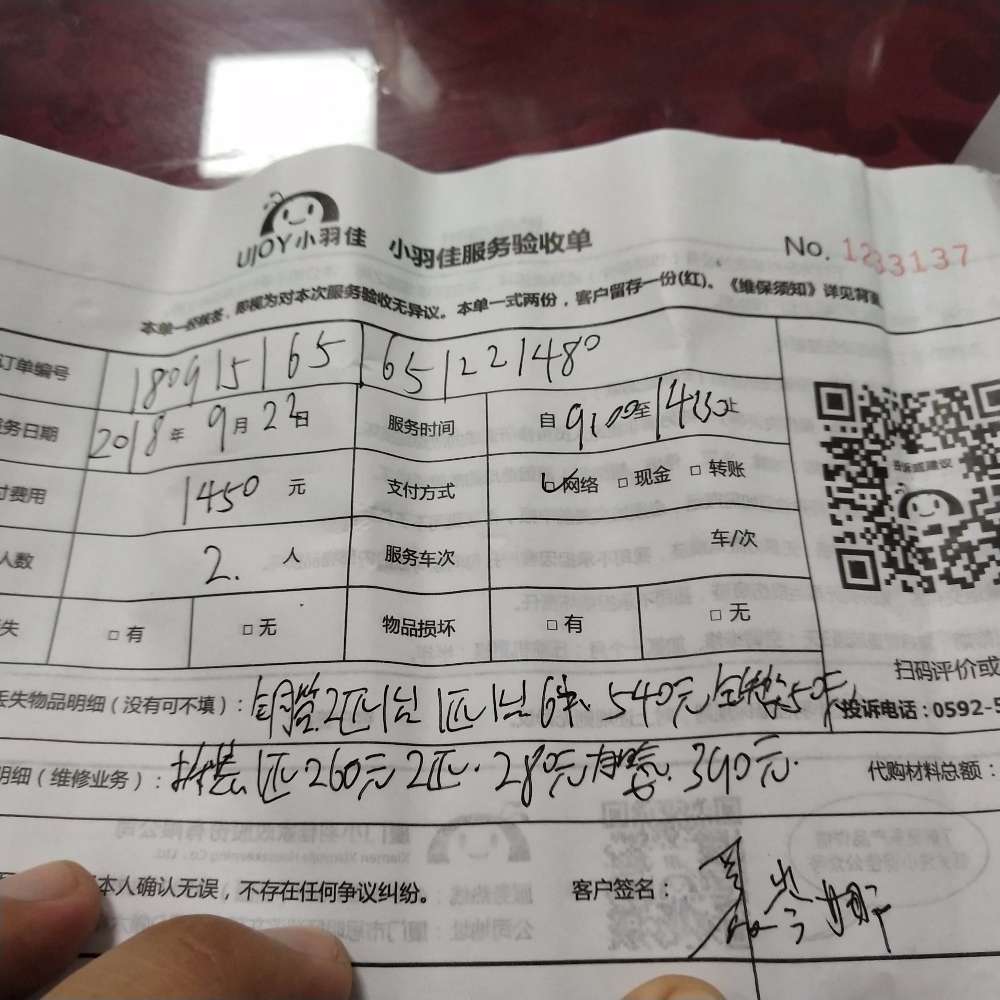 UJOY小羽佳 小羽佳服务验收单 No. 1233137
本单一经核签，即视为对本次服务验收无异议。本单一式两份，客户留存一份(红)。《维保须知》详见背
订单编号 180915165 651221480
务日期 2018年9月22日 服务时间 自9:00至14:30止
付费用 1450元 支付方式 ☑网络 □现金 □转账
人数 2.人 服务车次 车/次
失 □有 □无 物品损坏 □有 □无
投诉或建议
扫码评价或
丢失物品明细（没有可不填）： 2匹1台 1匹1台 6米 540元
投诉电话：0592-5
明细（维修业务）： 1匹260元 2匹.280元 390元.
代购材料总额：
本人确认无误，不存在任何争议纠纷。 客户签名：